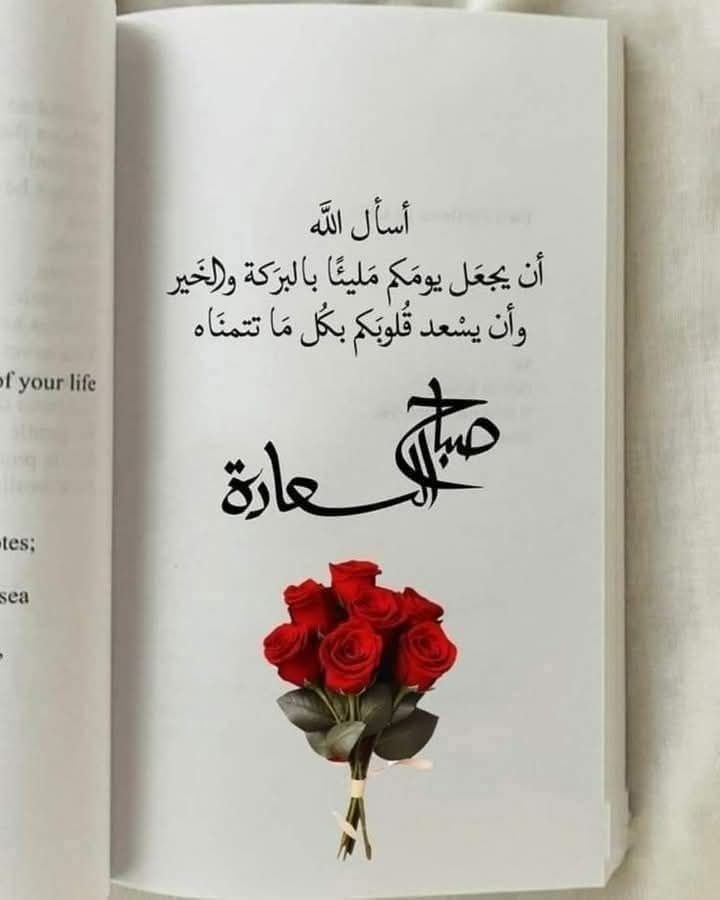 of your life
tes;
sea
,
أسأل اللَّه
أن يجعَل يومَكم مَليئًا بالبرَكة والخَير
وأن يسْعد قُلوبَكم بكُل مَا تتمنَاه
صباح
السعادة